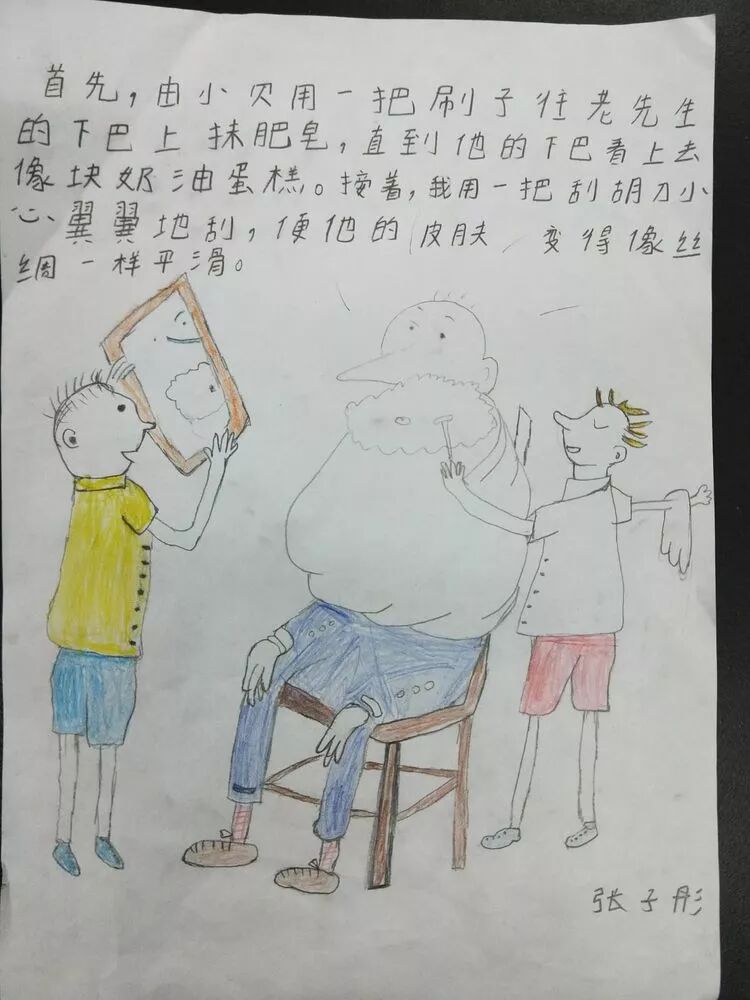 首先，由小贝用一把刷子往老先生
的下巴上抹肥皂，直到他的下巴看上去
像块奶油蛋糕。接着，我用一把刮胡刀小
心翼翼地刮，使他的皮肤变得像丝
绸一样平滑。
张子彤